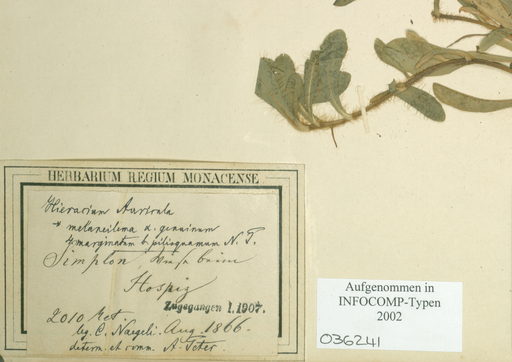 HERBARIUM REGIUM MONACENSE
Hieracium Auricula
* melaneilema α. genuinum
β. marginatum b. pilosquamum N. P.
Simplon, Wiese beim
Hospiz
Zugegangen I. 1907.
2010 Met.
leg. C. Naegeli. Aug. 1866.
determ. et comm. A. Peter.
Aufgenommen in
INFOCOMP-Typen
2002
036241